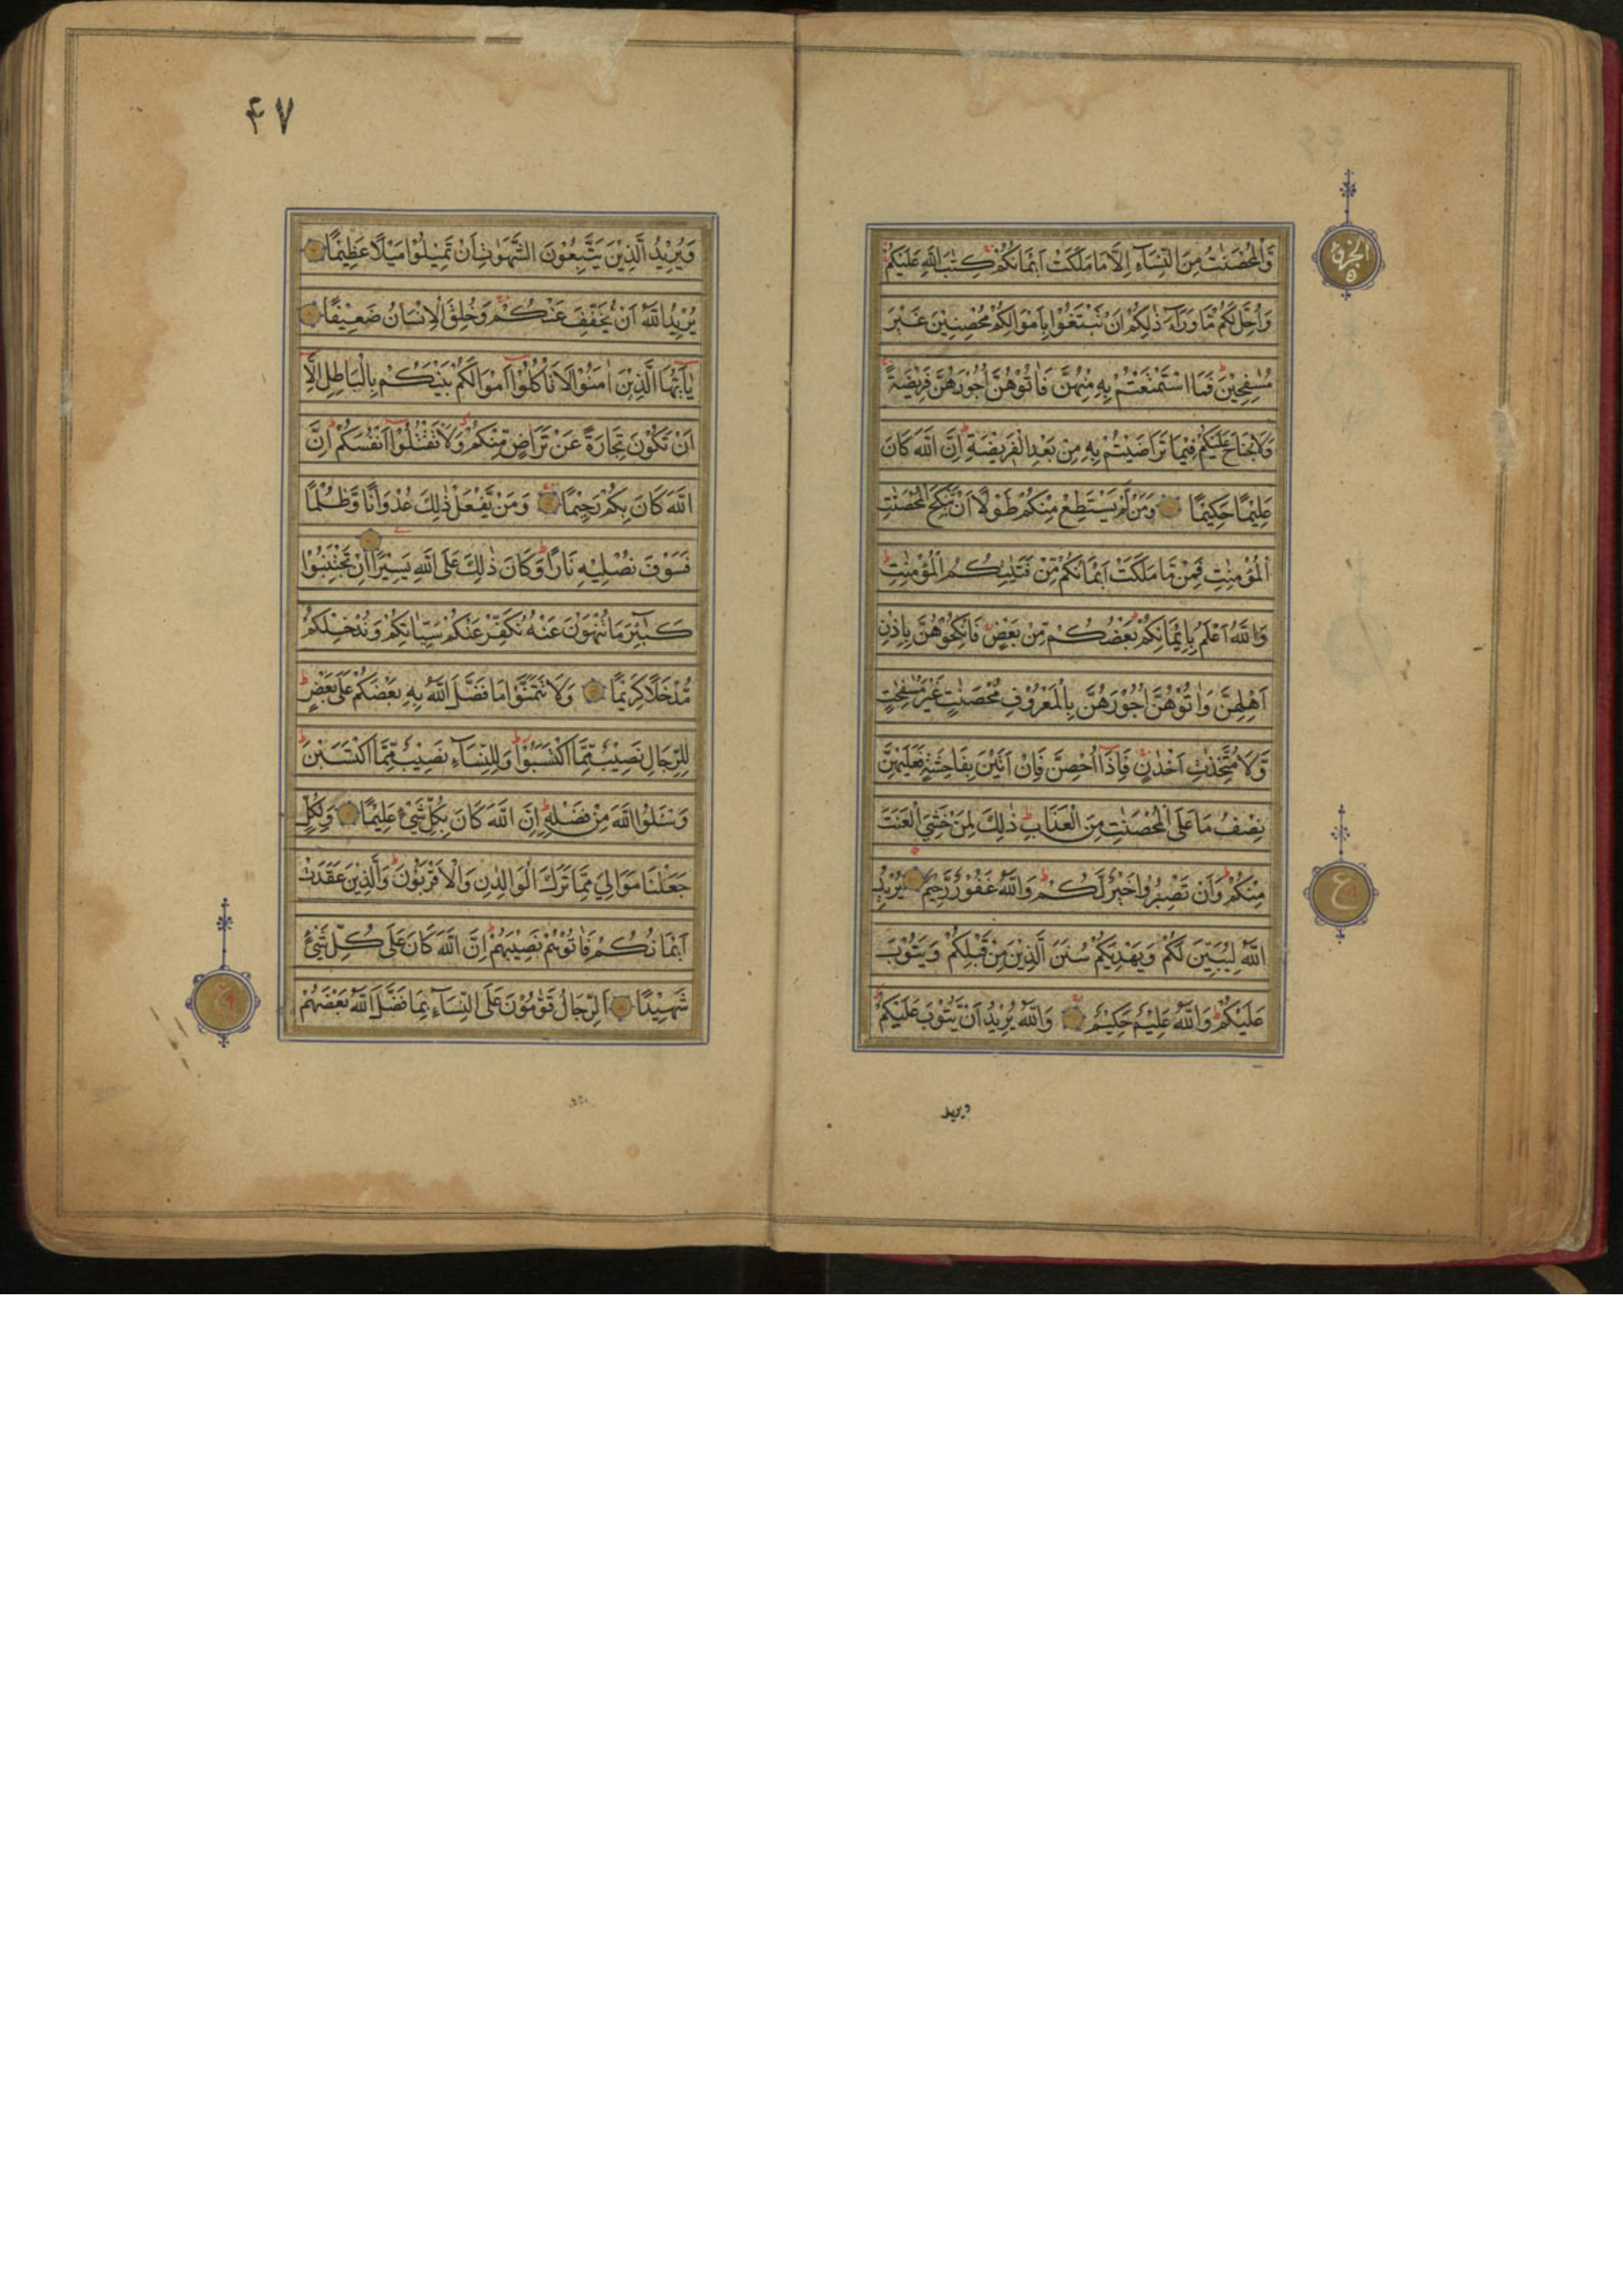 وَّالْمُحْصَنٰتُ مِنَ النِّسَآءِ اِلَّا مَا مَلَكَتْ اَيْمَانُكُمْ كِتٰبَ اللّٰهِ عَلَيْكُمْ
وَاُحِلَّ لَكُمْ مَّا وَرَآءَ ذٰلِكُمْ اَنْ تَبْتَغُوْا بِاَمْوَالِكُمْ مُّحْصِنِيْنَ غَيْرَ
مُسٰفِحِيْنَ فَمَا اسْتَمْتَعْتُمْ بِهٖ مِنْهُنَّ فَاٰتُوْهُنَّ اُجُوْرَهُنَّ فَرِيْضَةً
وَلَا جُنَاحَ عَلَيْكُمْ فِيْمَا تَرَاضَيْتُمْ بِهٖ مِنْ بَعْدِ الْفَرِيْضَةِ اِنَّ اللّٰهَ كَانَ
عَلِيْمًا حَكِيْمًا وَمَنْ لَّمْ يَسْتَطِعْ مِنْكُمْ طَوْلًا اَنْ يَّنْكِحَ الْمُحْصَنٰتِ
الْمُؤْمِنٰتِ فَمِنْ مَّا مَلَكَتْ اَيْمَانُكُمْ مِّنْ فَتَيٰتِكُمُ الْمُؤْمِنٰتِ
وَاللّٰهُ اَعْلَمُ بِاِيْمَانِكُمْ بَعْضُكُمْ مِّنْ بَعْضٍ فَانْكِحُوْهُنَّ بِاِذْنِ
اَهْلِهِنَّ وَاٰتُوْهُنَّ اُجُوْرَهُنَّ بِالْمَعْرُوْفِ مُحْصَنٰتٍ غَيْرَ مُسٰفِحٰتٍ
وَّلَا مُتَّخِذٰتِ اَخْدَانٍ فَاِذَا اُحْصِنَّ فَاِنْ اَتَيْنَ بِفَاحِشَةٍ فَعَلَيْهِنَّ
نِصْفُ مَا عَلَى الْمُحْصَنٰتِ مِنَ الْعَذَابِ ذٰلِكَ لِمَنْ خَشِيَ الْعَنَتَ
مِنْكُمْ وَاَنْ تَصْبِرُوْا خَيْرٌ لَّكُمْ وَاللّٰهُ غَفُوْرٌ رَّحِيْمٌ يُرِيْدُ
اللّٰهُ لِيُبَيِّنَ لَكُمْ وَيَهْدِيَكُمْ سُنَنَ الَّذِيْنَ مِنْ قَبْلِكُمْ وَيَتُوْبَ
عَلَيْكُمْ وَاللّٰهُ عَلِيْمٌ حَكِيْمٌ وَاللّٰهُ يُرِيْدُ اَنْ يَّتُوْبَ عَلَيْكُمْ
ويريد
الجزء ٥
ع
۴۷
وَيُرِيْدُ الَّذِيْنَ يَتَّبِعُوْنَ الشَّهَوٰتِ اَنْ تَمِيْلُوْا مَيْلًا عَظِيْمًا
يُرِيْدُ اللّٰهُ اَنْ يُّخَفِّفَ عَنْكُمْ وَخُلِقَ الْاِنْسَانُ ضَعِيْفًا
يٰٓاَيُّهَا الَّذِيْنَ اٰمَنُوْا لَا تَاْكُلُوْا اَمْوَالَكُمْ بَيْنَكُمْ بِالْبَاطِلِ اِلَّا
اَنْ تَكُوْنَ تِجَارَةً عَنْ تَرَاضٍ مِّنْكُمْ وَلَا تَقْتُلُوْا اَنْفُسَكُمْ اِنَّ
اللّٰهَ كَانَ بِكُمْ رَحِيْمًا وَمَنْ يَّفْعَلْ ذٰلِكَ عُدْوَانًا وَّظُلْمًا
فَسَوْفَ نُصْلِيْهِ نَارًا وَّكَانَ ذٰلِكَ عَلَى اللّٰهِ يَسِيْرًا اِنْ تَجْتَنِبُوْا
كَبٰٓئِرَ مَا تُنْهَوْنَ عَنْهُ نُكَفِّرْ عَنْكُمْ سَيِّاٰتِكُمْ وَنُدْخِلْكُمْ
مُّدْخَلًا كَرِيْمًا وَلَا تَتَمَنَّوْا مَا فَضَّلَ اللّٰهُ بِهٖ بَعْضَكُمْ عَلٰى بَعْضٍ
لِلرِّجَالِ نَصِيْبٌ مِّمَّا اكْتَسَبُوْا وَلِلنِّسَآءِ نَصِيْبٌ مِّمَّا اكْتَسَبْنَ
وَسْـَٔلُوا اللّٰهَ مِنْ فَضْلِهٖ اِنَّ اللّٰهَ كَانَ بِكُلِّ شَيْءٍ عَلِيْمًا وَلِكُلٍّ
جَعَلْنَا مَوَالِيَ مِمَّا تَرَكَ الْوَالِدٰنِ وَالْاَقْرَبُوْنَ وَالَّذِيْنَ عَقَدَتْ
اَيْمَانُكُمْ فَاٰتُوْهُمْ نَصِيْبَهُمْ اِنَّ اللّٰهَ كَانَ عَلٰى كُلِّ شَيْءٍ
شَهِيْدًا اَلرِّجَالُ قَوّٰمُوْنَ عَلَى النِّسَآءِ بِمَا فَضَّلَ اللّٰهُ بَعْضَهُمْ
ع